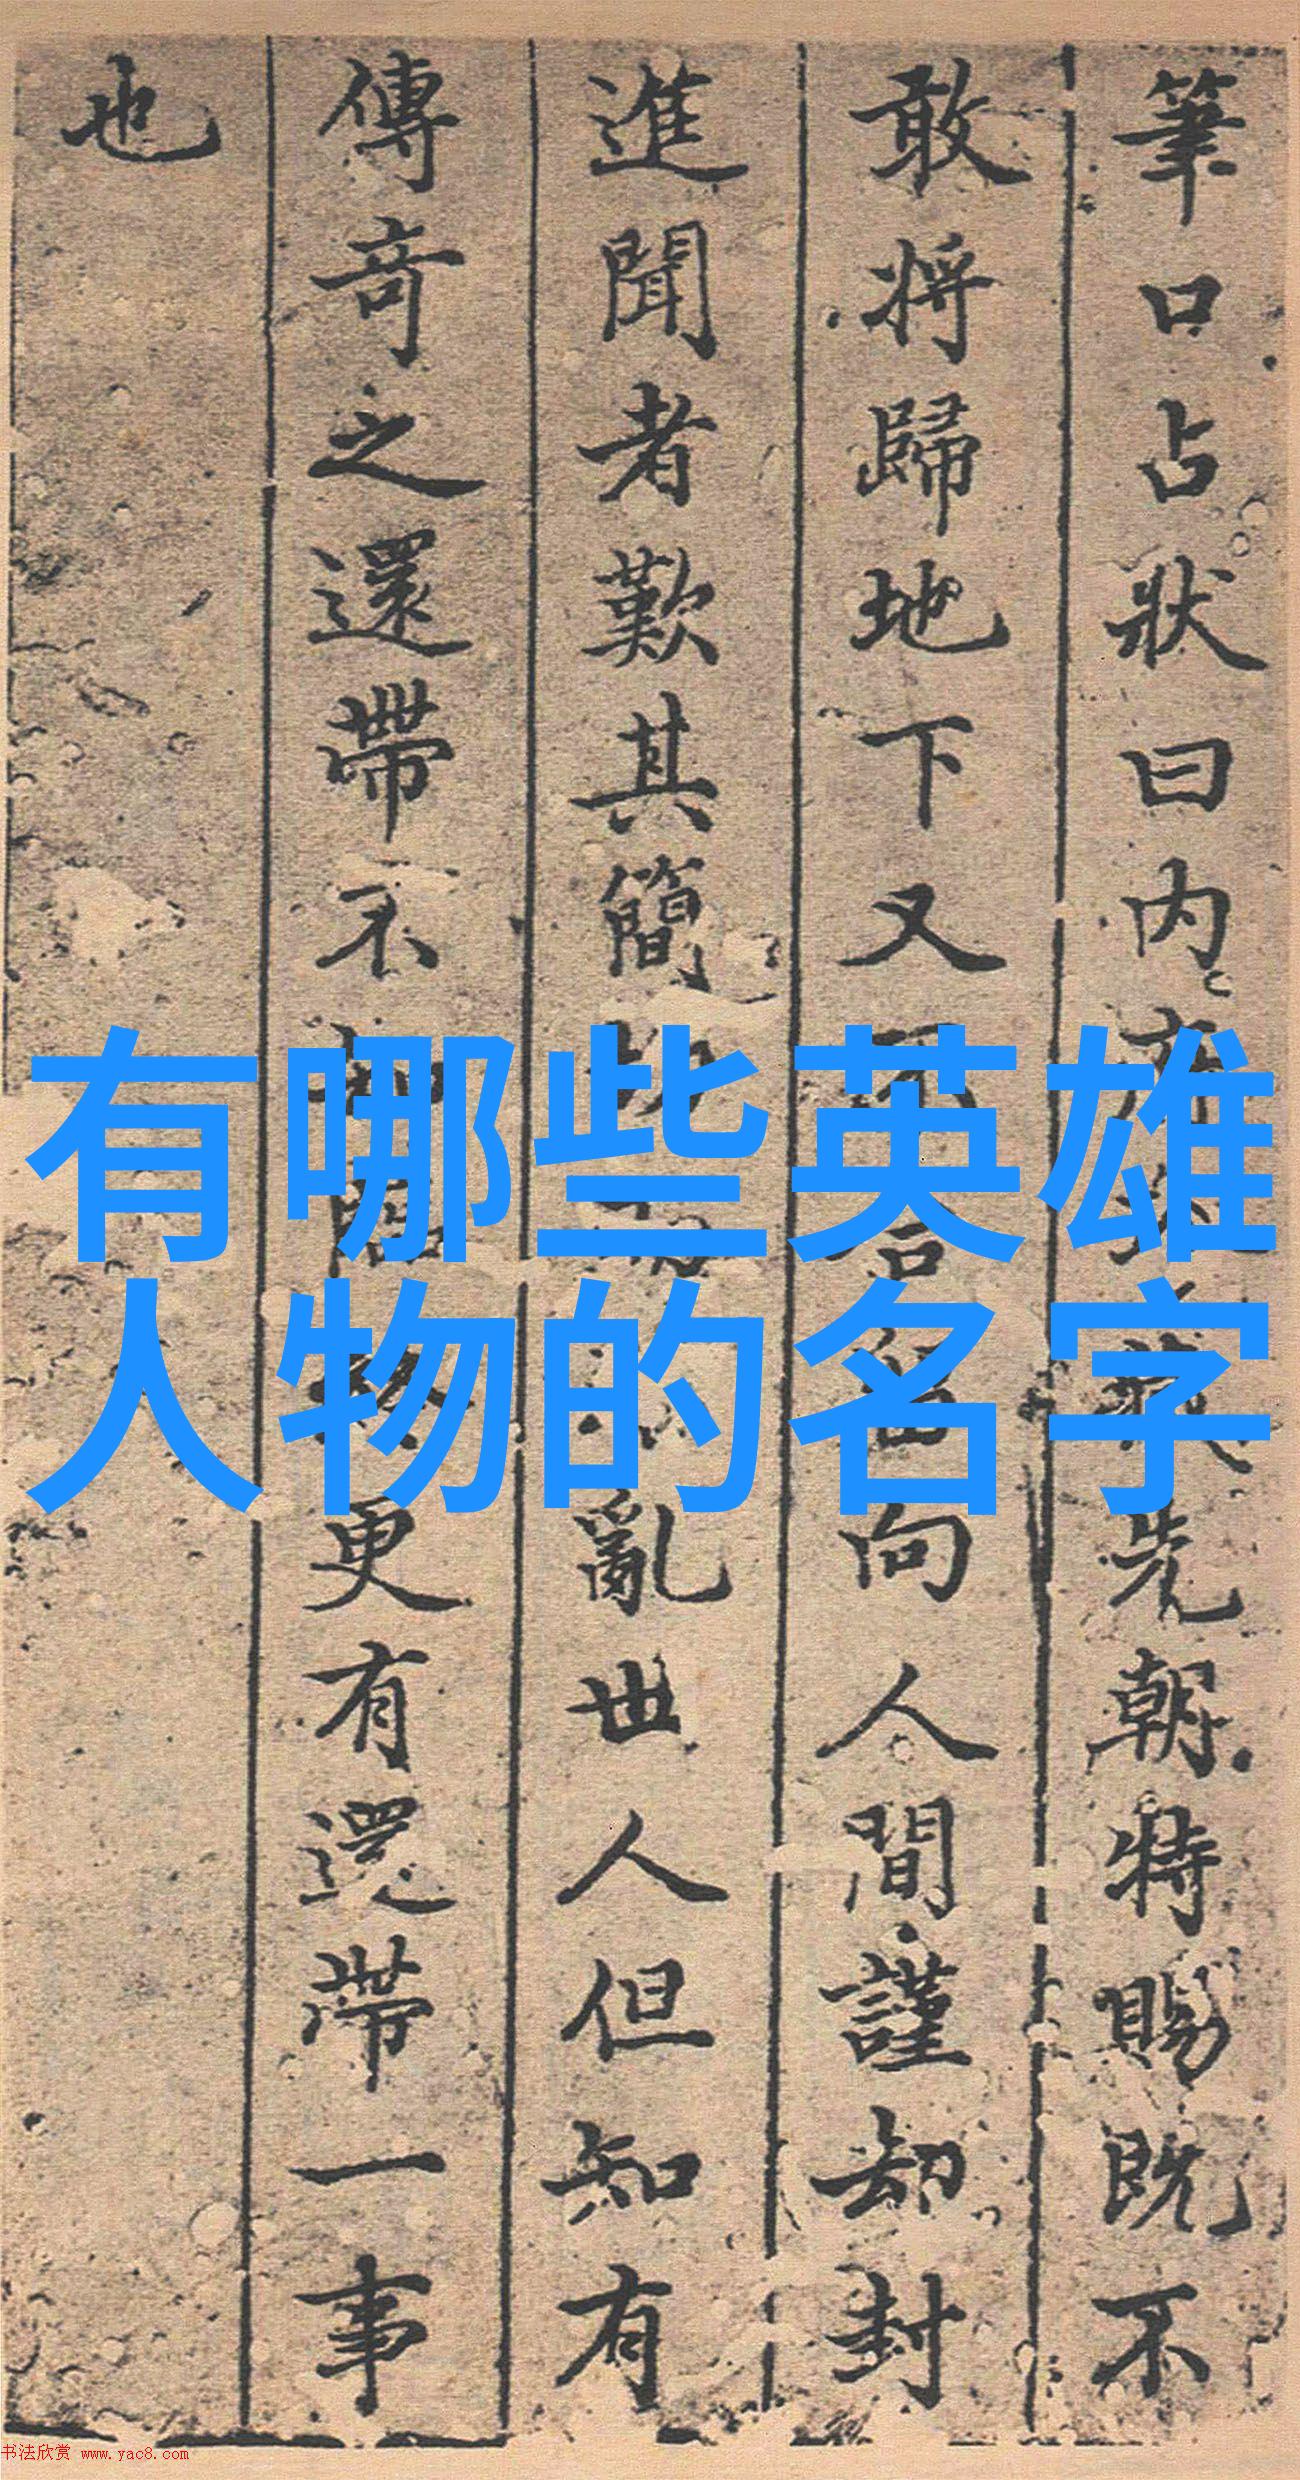 筆口占狀曰内先朝特賜既不
敢將歸地下又不合留向人間謹却封
進聞者歎其簡切亂世人但知有
傳奇之還帶不知臨終更有還帶一事
也
有哪些英雄
人物的名字
书法欣赏 www.yac8.com